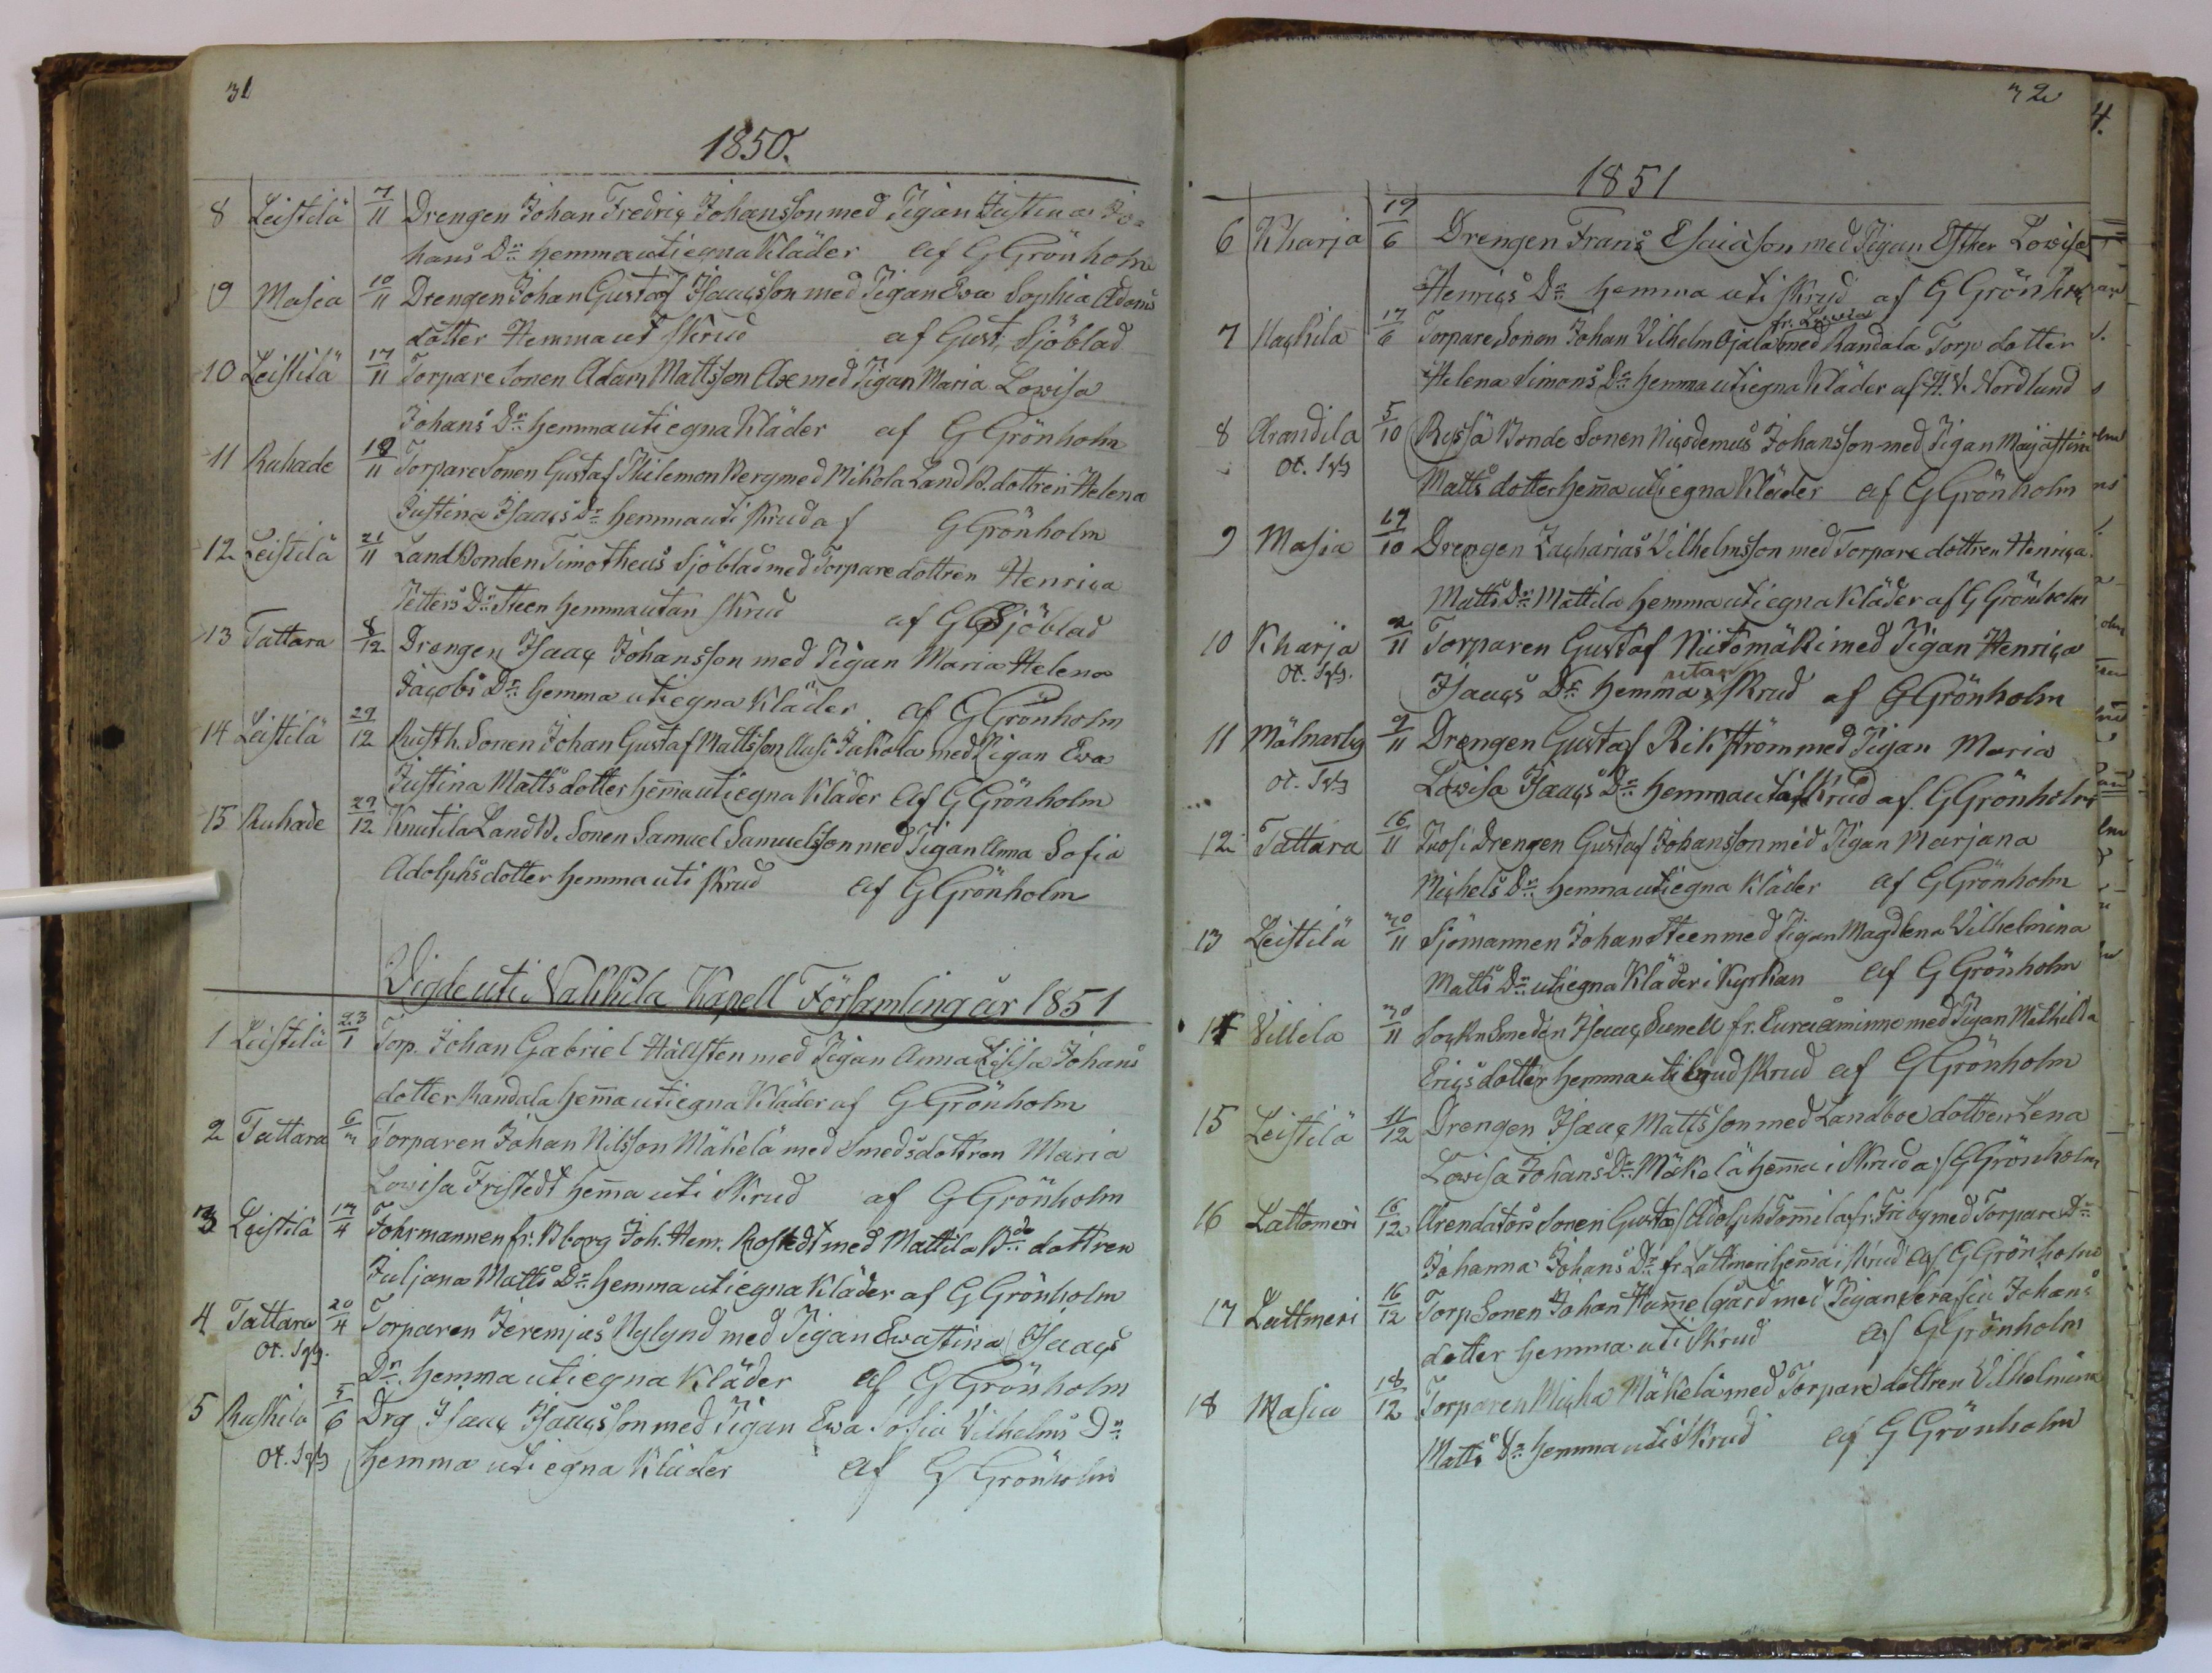 31
1850.
8 Leistilä 7/11 Drengen Johan Fredric Johansson med Pigan Justina Jo=
hans Dr hemma uti egna Kläder af G Grönholm
9 Masia 10/11 Drengen Johan Gustaf Isacsson med Pigan Eva Sophia Adams
dotter Hemma ut skrud af Gust. Sjöblad
10 Leistilä 17/11 Torpare Sonen Adam Mattsson Axe med Pigan Maria Lowisa
Johans Dr hemma uti egna Kläder af G Grönholm
11 Ruhade 18/11 Torpare Sonen Gustaf Filemon Berg med Mikola Land B. dottren Helena
Justina Isaacs Dr hemma uti skrud af G Grönholm
12 Leistilä 21/11 Land Bonden Timotheus Sjöblad med Torpare dottren Henrica
Petters Dr Steen hemma utan skrud af G Sjöblad
13 Tattara 8/12 Drengen Isaac Johansson med Pigan Maria Helena
Jacobs Dr hemma uti egna Kläder af G Grönholm
14 Leistilä 29/12 Rusth. Sonen Johan Gustaf Mattsson Ausi Jakola med Pigan Ewa
Justina Matts dotter hema uti egna Kläder af G Grönholm
15 Ruhade 29/12 Knutila Land B. Sonen Samuel Samuelsson med Pigan Anna Sofia
Adolphs dotter hemma uti skrud af G Grönholm
Vigde uti Nakkila Kapell Församling år 1851
1 Leistilä 23/1 Torp. Johan Gabriel Hällsten med Pigan Anna Lisisa Johans
dotter Randala hema uti egna Kläder af G Grönholm
2 Tattara 6/3 Torparen Johan Nilsson Mäkelä med Smedsdottren Maria
Lowisa Fristedt hema uti skrud af G Grönholm
3 Leistilä 13/4 Fohrmannen fr. Bborg Joh. Hem. Rostedt med Mattila Bde dottren
Juljana Matts Dr hemma uti egna Kläder af G Grönholm
4 Tattara 20/4 Torparen Jeremjas Nylynd med Pigan Ewastina Isaacs
Ot. Sqfs. Dr. hemma uti egna Kläder af G Grönholm
5 Ruskila 5/6 Drg Isaac Isaacsson med Pigan Ewa Sofia Vilhelms Dr
Ot. Sqfs hemma uti egna Kläder af G Grönholm
32
1851
6 Kharja 19/6 Drengen Frans Esaiason med Pigan Esther Lowisa
Henrics Dr hemma uti skrud af G Grönholm
7 Nackila 17/6 Torpare Sonen Johan Vilhelm Ojala fr. Luvia med Randala Torp dotter
Helena Simons Dr hemma uti egna Kläder af H. V. Nordlund
8 Arandila 5/10 Ryssä Bonde Sonen Nicodemus Johansson med Pigan Maijastina
Ot. Sqfs Matts dotter hema uti egna Kläder af G Grönholm
9 Masia 19/10 Drengen Zacharias Vilhelmsson med Torpare dottren Henrica
Matts Dr Mattila hemma uti egna Kläder af G Grönholm
10 Kharja 2/11 Torparen Gustaf Niitomäki med Pigan Henrica
Ot. Sqfs. Isaacs Dr hemma utan skrud af G Grönholm
11 Mälnarby 9/11 Drengen Gustaf Rikström med Pigan Maria
Ot. Sqfs Lowisa Isaacs Dr hemma utaf skrud af G Grönholm
12 Tattara 16/11 Juosi Drengen Gustaf Johansson med Pigan Marjana
Michels Dr hemma uti egna Kläder af G Grönholm
13 Leistilä 30/11 Sjömannen Johan Steen med Pigan Magdlena Vilhelmina
Matts Dr uti egna Kläder i Kyrkan af G Grönholm
14 Villila 30/11 Sockn Smeden Isaac Sunell fr. Euraåminne med Pigan Mathilda
Erics dotter hemma uti brud skrud af G Grönholm
15 Leistilä 11/12 Drengen Isaac Mattsson med Landboe dottren Lena
Lowisa Johans Dr Mäkelä hema i Skrud af G Grönholm
16 Lattomeri 16/12 Arendators Sonen Gustaf Adolph Tomila fr. Friby med Torpare Dr
Johanna Johans Dr fr Lattmeri hema i skrud af G Grönholm
17 Lattmeri 16/12 Torp Sonen Johan Hamelgård med Pigan Serafia Johans
dotter hemma uti Skrud af G Grönholm
18 Masia 18/12 Torparen Micha Mäkelä med Torpare dottren Vilhelmina
Matts Dr hemma uti Skrud af G Grönholm